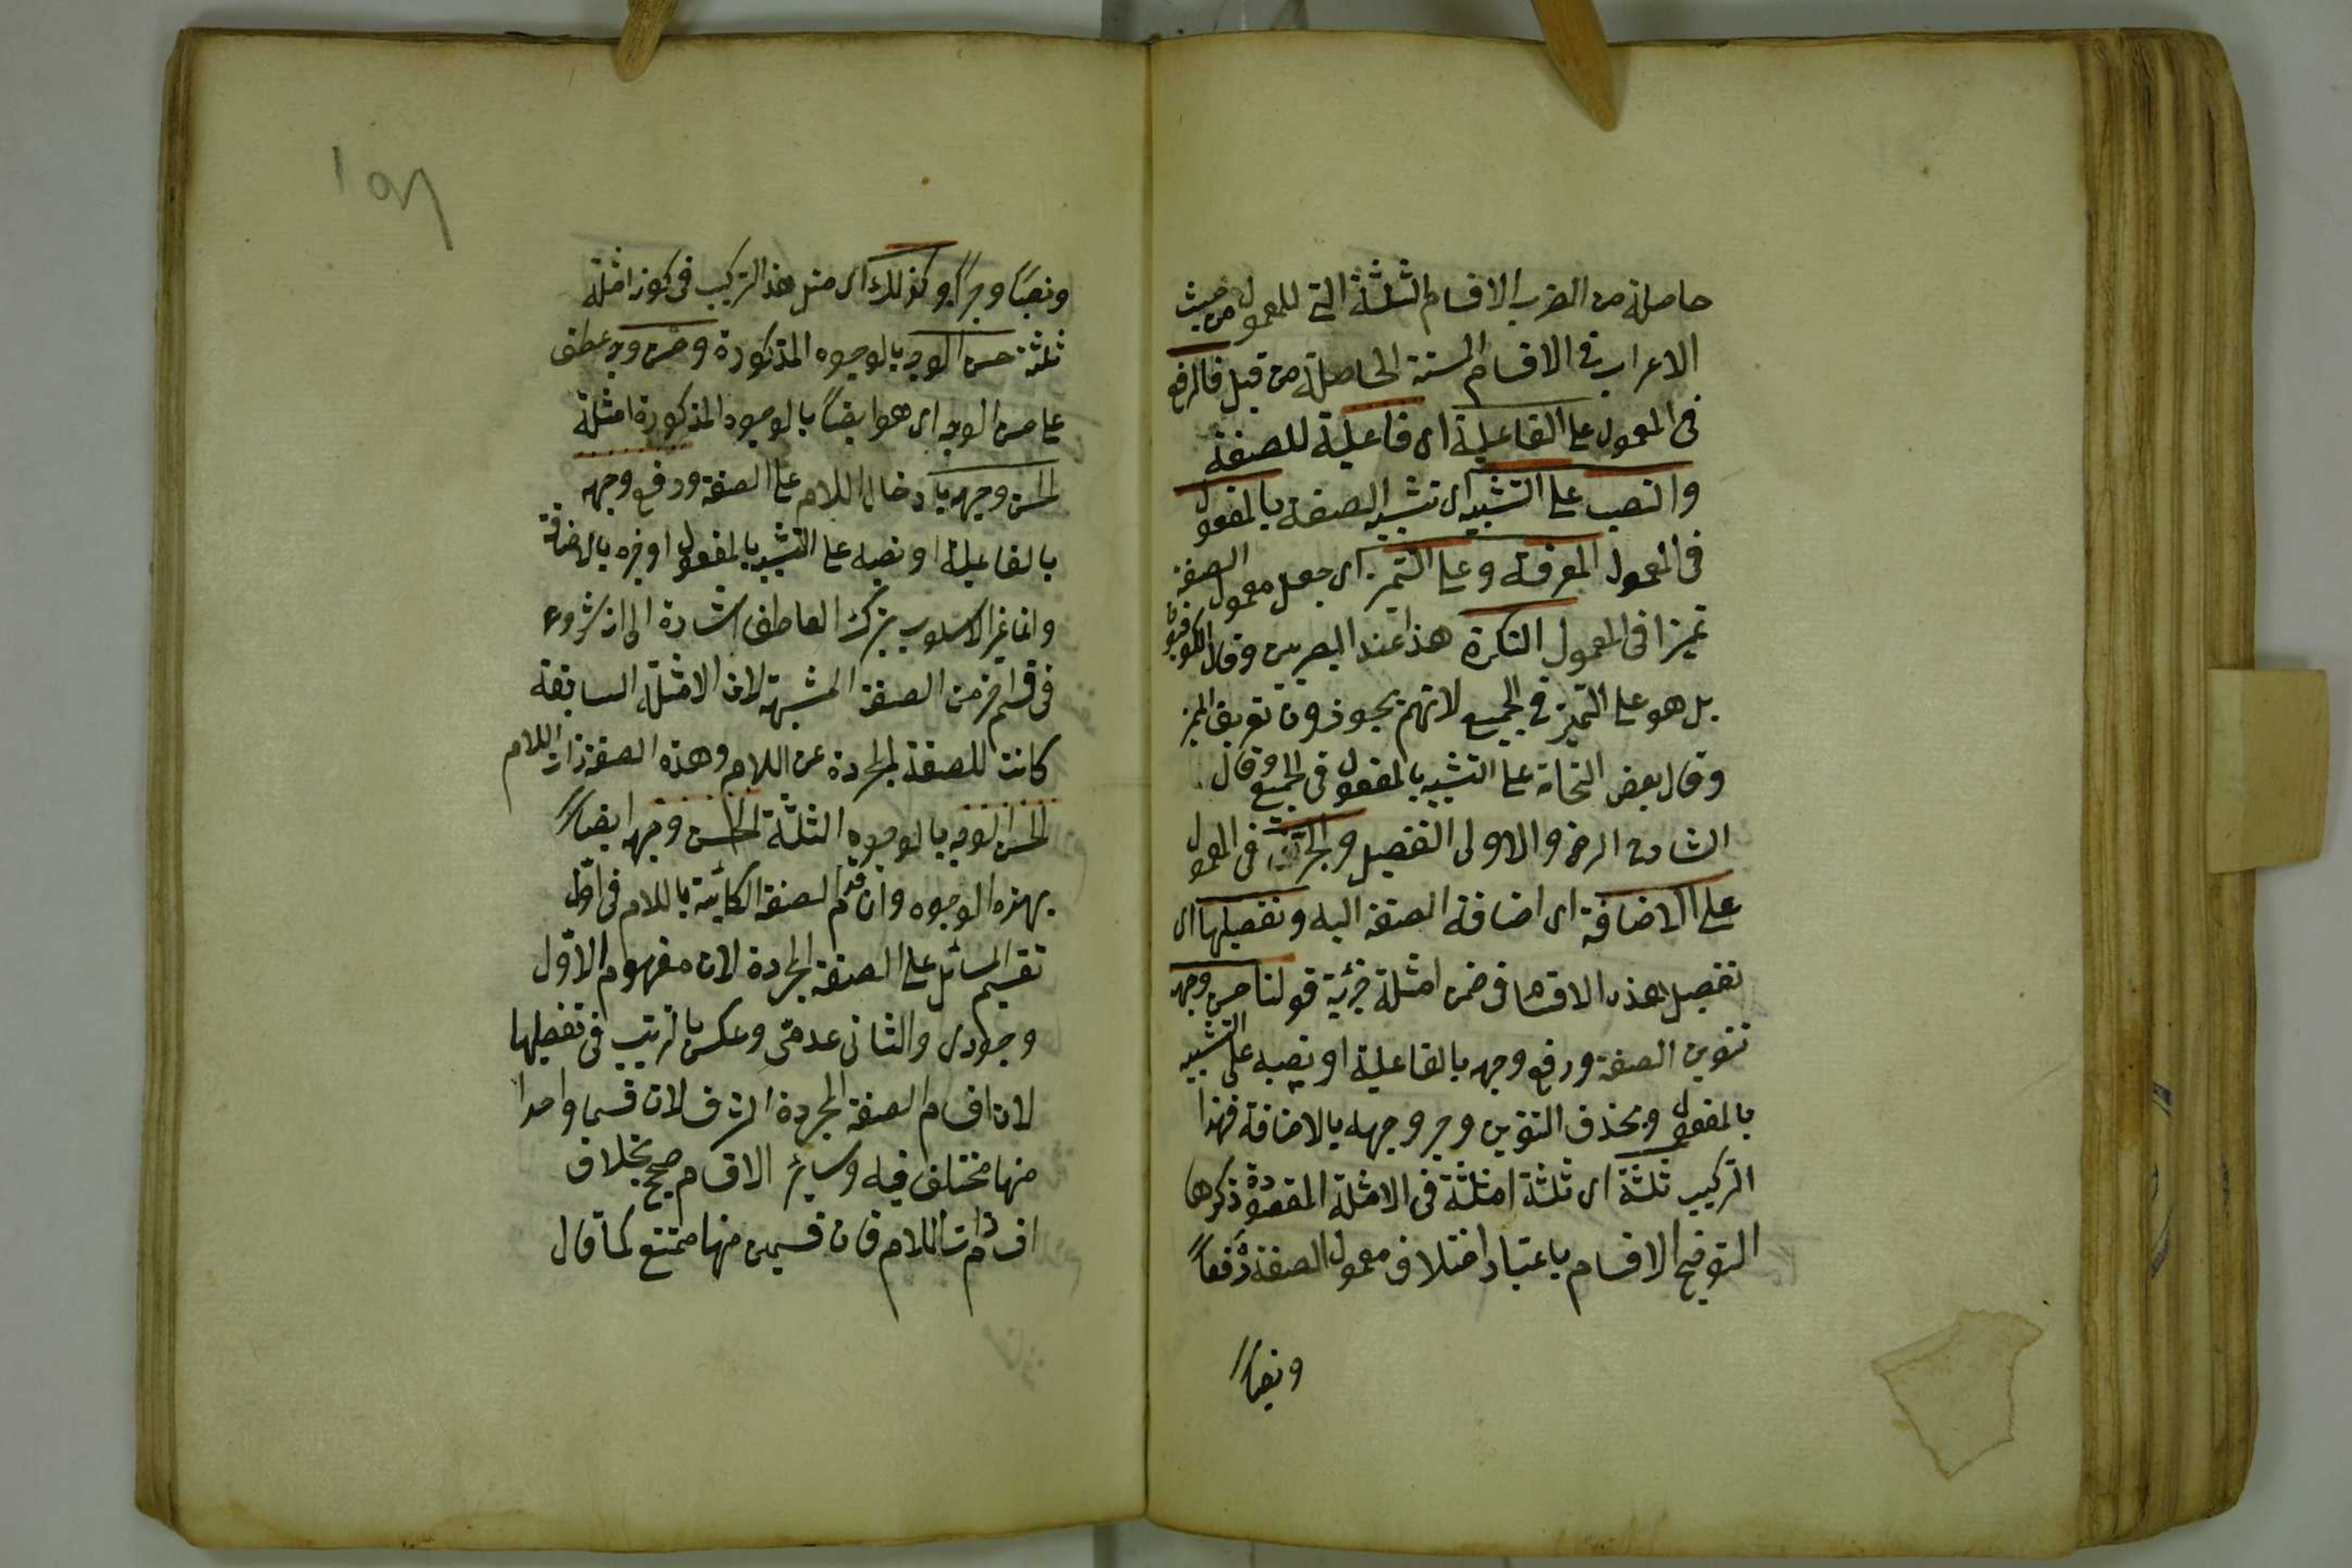 حاصلة من الضرب الاقسام الثلثة التي للمعمول من حيث
الاعراب في الاقسام الستة الحاصلة من قبل فالرفع
في المعمول على الفاعلية اى فاعلية للصفة
والنصب على التشبيه اى تشبيه الصفة بالمفعول
في المعمول المعرفة وعلى التميز اى جعل معمول الصفة
تميزا في المعمول النكرة هذا عند البصريين وقال الكوفيون
بل هو على التميز في الجميع لانهم يجوزون تعريف المميز
وقال بعض النحاة على التشبيه بالمفعول في الجميع وقال
الشارح الرضى والاولى التفصيل والجر في المعمول
على الاضافة اى اضافة الصفة اليه وتفصيلها اى
تفصيل هذه الاقسام في ضمن امثلة جزئية قولنا حسن وجهه
تنوين الصفة ورفع وجهه بالفاعلية او نصبه على التشبيه
بالمفعول وبحذف التنوين وجر وجهه بالاضافة فهذا
التركيب ثلثة اى ثلثة امثلة في الامثلة المقصودة ذكرها
التوضيح الاقسام باعتبار اختلاف معمول الصفة رفعاً
ونصباً
١٥٦
ونصباً وجراً وكذلك اى مثل هذا التركيب في كونه امثلة
ثلثة حسن الوجه بالوجوه المذكورة وحسن وجه عطف
على حسن الوجه اى هو ايضاً بالوجوه المذكورة امثلة
الحسن وجهه بادخال اللام على الصفة ورفع وجهه
بالفاعلية او نصبه على التشبيه بالمفعول او جره بالاضافة
وانما غير الاسلوب بترك العاطف اشارة الى انه شروع
في قسم اخر من الصفة المشبهة لان الامثلة السابقة
كانت للصفة المجردة عن اللام وهذه الصفة ذات اللام
الحسن الوجه بالوجوه الثلثة الحسن وجه ايضاً
بهذه الوجوه وان قدم الصفة الكائنة باللام في اول
تقسيم المسائل على الصفة المجردة لان مفهوم الاول
وجودى والثانى عدمى وعكس الترتيب في تفصيلها
لان اقسام الصفة المجردة اشرف لان قسما واحدا
منها مختلف فيه وسائر الاقسام صحيح بخلاف
اقسام ذات اللام فان قسمين منها ممتنع كما قال